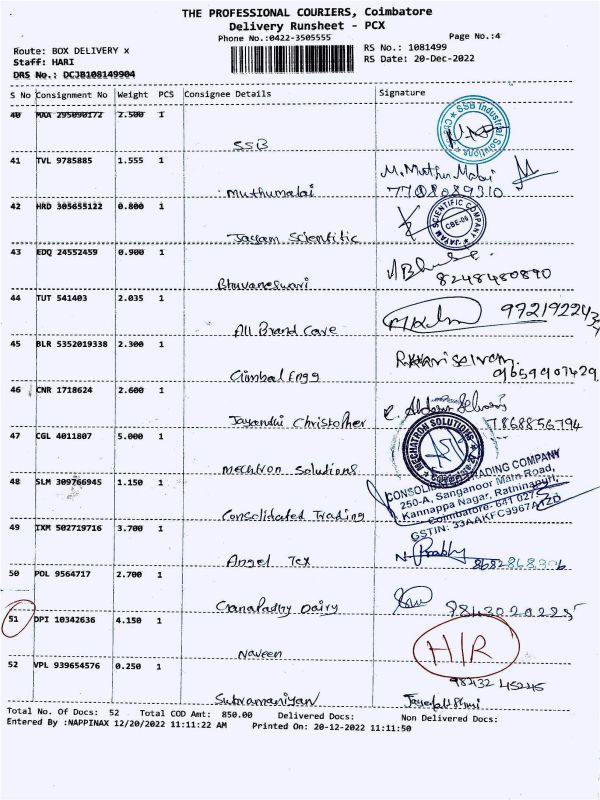 THE PROFESSIONAL COURIERS, Coimbatore
Delivery Runsheet - PCX
Phone No.:0422-3505555
Page No.:4
Route: BOX DELIVERY x
RS No.: 1081499
Staff: HARI
RS Date: 20-Dec-2022
DRS No.: DCJB108149904
S No Consignment No Weight PCS Consignee Details Signature
40 MAA 295090172 2.500 1
SSB
SSB Industrial Solutions
41 TVL 9785885 1.555 1
Muthumalai
M. Muthu Malai
7708089310
42 HRD 305655122 0.800 1
Jayam Scientific
JAYAM SCIENTIFIC COMPANY
CBE-06
43 EDQ 24552459 0.900 1
Bhuvaneswari
8248480890
44 TUT 541403 2.035 1
All Brand Care
45 BLR 5352019338 2.300 1
Gimbal Engg
9659907429
46 CNR 1718624 2.600 1
Jayanthi Christopher
7868856794
47 CGL 4011807 5.000 1
Mechtron Solutions
MECHATRON SOLUTIONS
48 SLM 309766945 1.150 1
Consolidated Trading
TRADING COMPANY
250-A, Sanganoor Main Road,
Kannappa Nagar, Rathinapuri,
Coimbatore- 641 027
GSTIN: 33AAKFC9967A1ZD
49 IXM 502719716 3.700 1
Angel Tex
50 POL 9564717 2.700 1
Ganapathy Dairy
51 DPI 10342636 4.150 1
Naveen
H/R
52 VPL 939654576 0.250 1
Subramaniyan
98432 45245
Total No. Of Docs: 52 Total COD Amt: 850.00 Delivered Docs: Non Delivered Docs:
Entered By :NAPPINAX 12/20/2022 11:11:22 AM Printed On: 20-12-2022 11:11:50